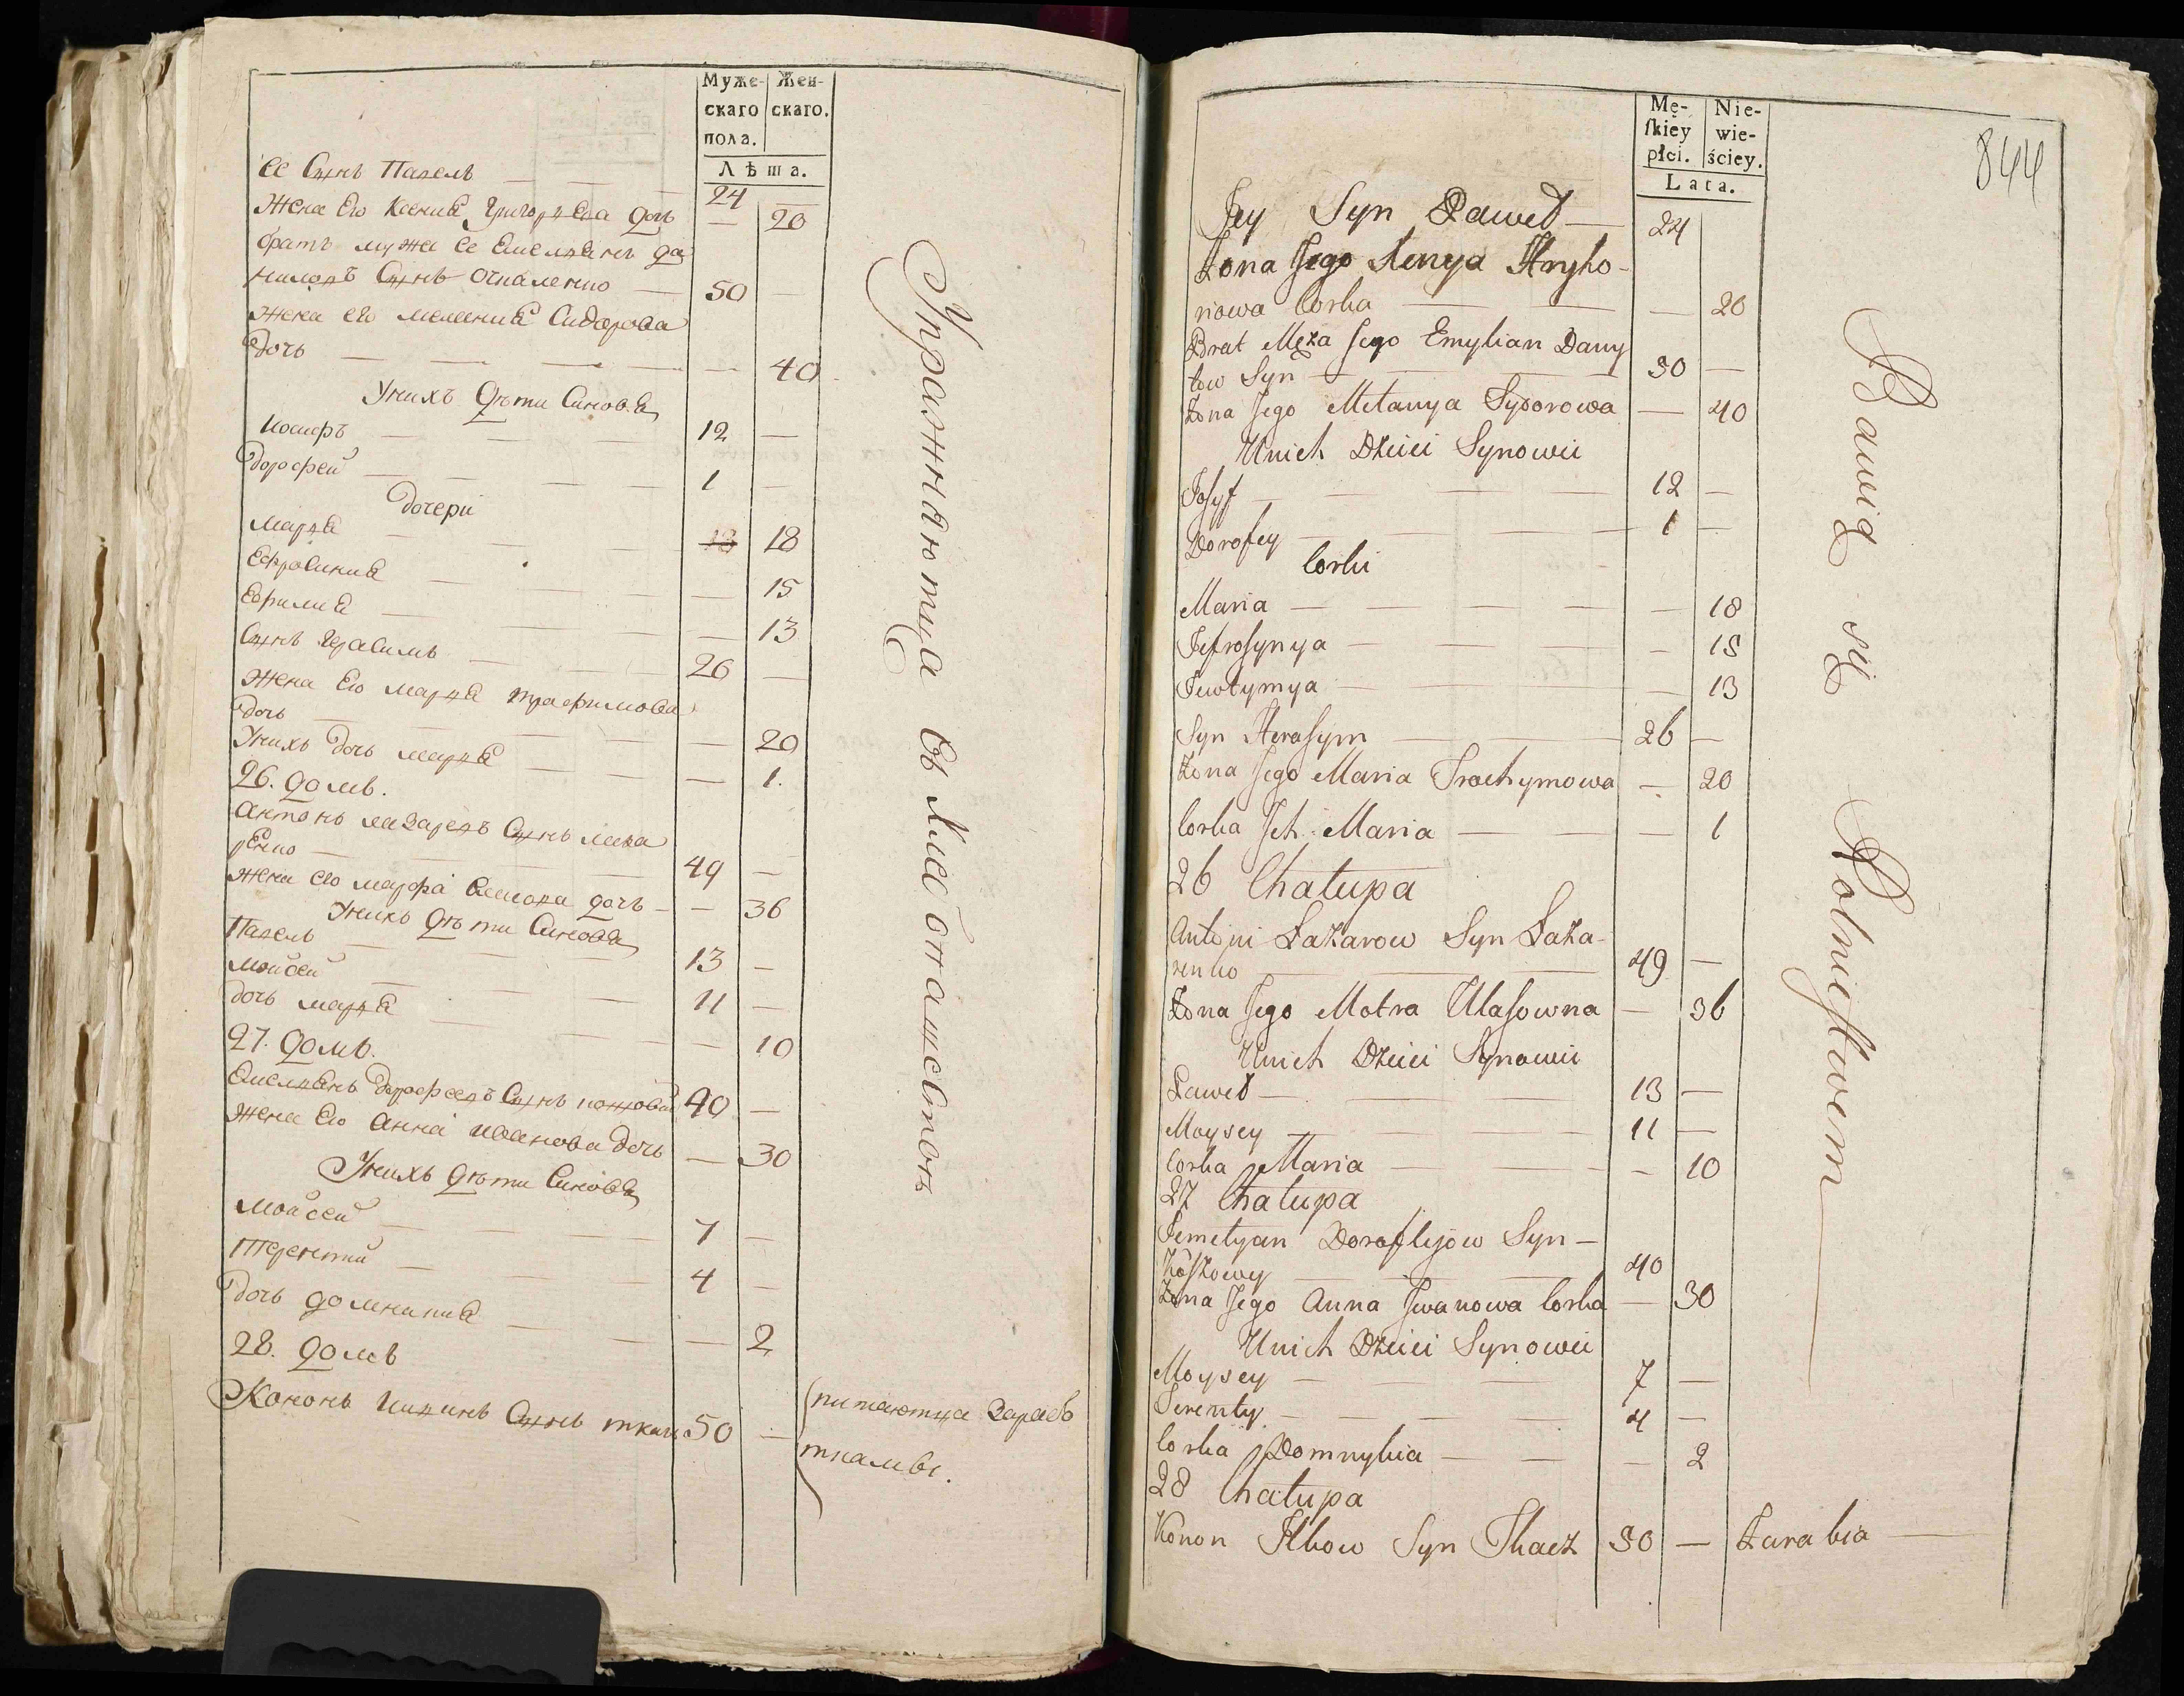 Муже-
скаго
пола.
Жен-
скаго.
Лѣта.
ее Сынъ Павелъ — 24 —
Жена Его Ксения Григорьева дочь — 20
братъ мужа ее Емельянъ да
ниловъ Сынъ — 50 —
жена его мелания Сидорова
дочь — — 40
Унихъ дѣти Синовья
Иосифъ — 12 —
дорофей — 1 —
дочери
Марья — 18
Ефросиния — 15
Евфимия — 13
Сынъ Герасимъ — 26 —
жена Его Марья трофимова
дочь — — 20
Унихъ дочь марья — 1.
26. домъ.
антонъ лазаревъ Сынъ лаза
ренко — 49 —
жена его мотра власова дочь — — 36
Унихъ дѣти Синовья
Павелъ — 13 —
Мойсей — 11 —
дочь марья — — 10
27. домъ.
Емельянъ дорофеевъ Сынъ кошовой 40 —
жена Его Анна иванова дочь — 30
Унихъ дѣти Синовья
Мойсей — 7 —
Терентий — 4 —
дочь домникия — — 2
28. домъ
Кононъ Ильинъ Сынъ ткачъ 50 —
питаются зарабо
тками.
Упражняются въ хлебопашествъ
844
Mę-
skiey
płci.
Nie-
wie-
ściey.
Lata.
Jey Syn Paweł — 24
Żona Jego Xenya Hryho-
riowa Corka — — 20
Brat Męża Jego Emylian Dany
łow Syn — 50 —
Żona Jego Mełanya Sydorowa — 40
Unich Dzieci Synowii
Josyf — 12 —
Dorofey — 1 —
Corki
Maria — — 18
Jefrosynya — — 15
Jewtymya — — 13
Syn Herasym — 26 —
Żona Jego Maria Trochymowa — 20
Corka Jch Maria — — 1
26 Chałupa
Antoni Łazarow Syn Łaza-
renko — 49 —
Żona Jego Motra Ułasowna — 36
Unich Dzieci Synowii
Paweł — 13 —
Moysey — 11 —
Corka Maria — — 10
27 Chałupa
Jemelyan Dorofiejow Syn —
Koszowy — 40
Żona Jego Anna Jwanowa Corka — 30
Unich Dzieci Synowii
Moysey — 7 —
Terenty — 4 —
Corka Domnykia — — 2
28 Chałupa
Konon Jlkow Syn Tkacz 50 — Zarabia —
Bawią się Rolnictwem